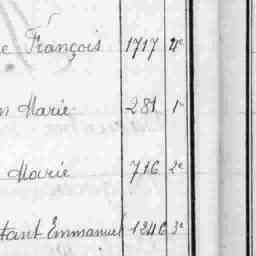 e François 1717 4e
n Marie 281 1e
Marie 716 2e
tant Emmanuel 1246 3e